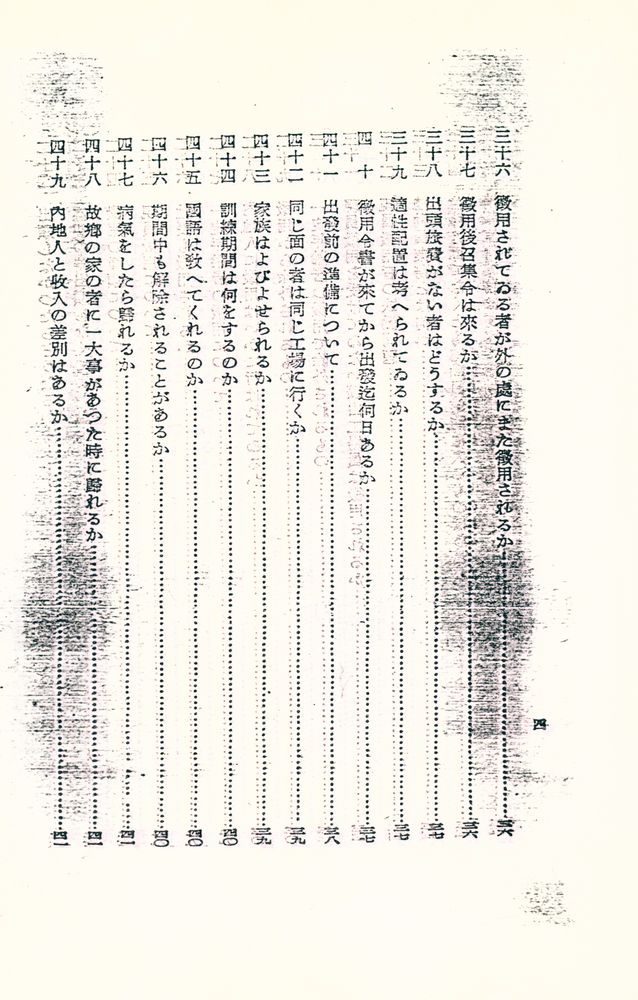 四
三十六 徵用されてゐる者が外の處にまた徵用されるか…三六
三十七 徵用後召集令は來るか…三六
三十八 出頭旅費がない者はどうするか…三七
三十九 適性配置は考へられてゐるか…三七
四十 徵用令書が來てから出發迄何日あるか…三七
四十一 出發前の準備について…三八
四十二 同じ面の者は同じ工場に行くか…三九
四十三 家族はよびよせられるか…三九
四十四 訓練期間は何をするのか…四〇
四十五 國語は敎へてくれるのか…四〇
四十六 期間中も解除されることがあるか…四〇
四十七 病氣をしたら歸れるか…四一
四十八 故鄕の家の者に一大事があつた時に歸れるか…四一
四十九 內地人と收入の差別はあるか…四二